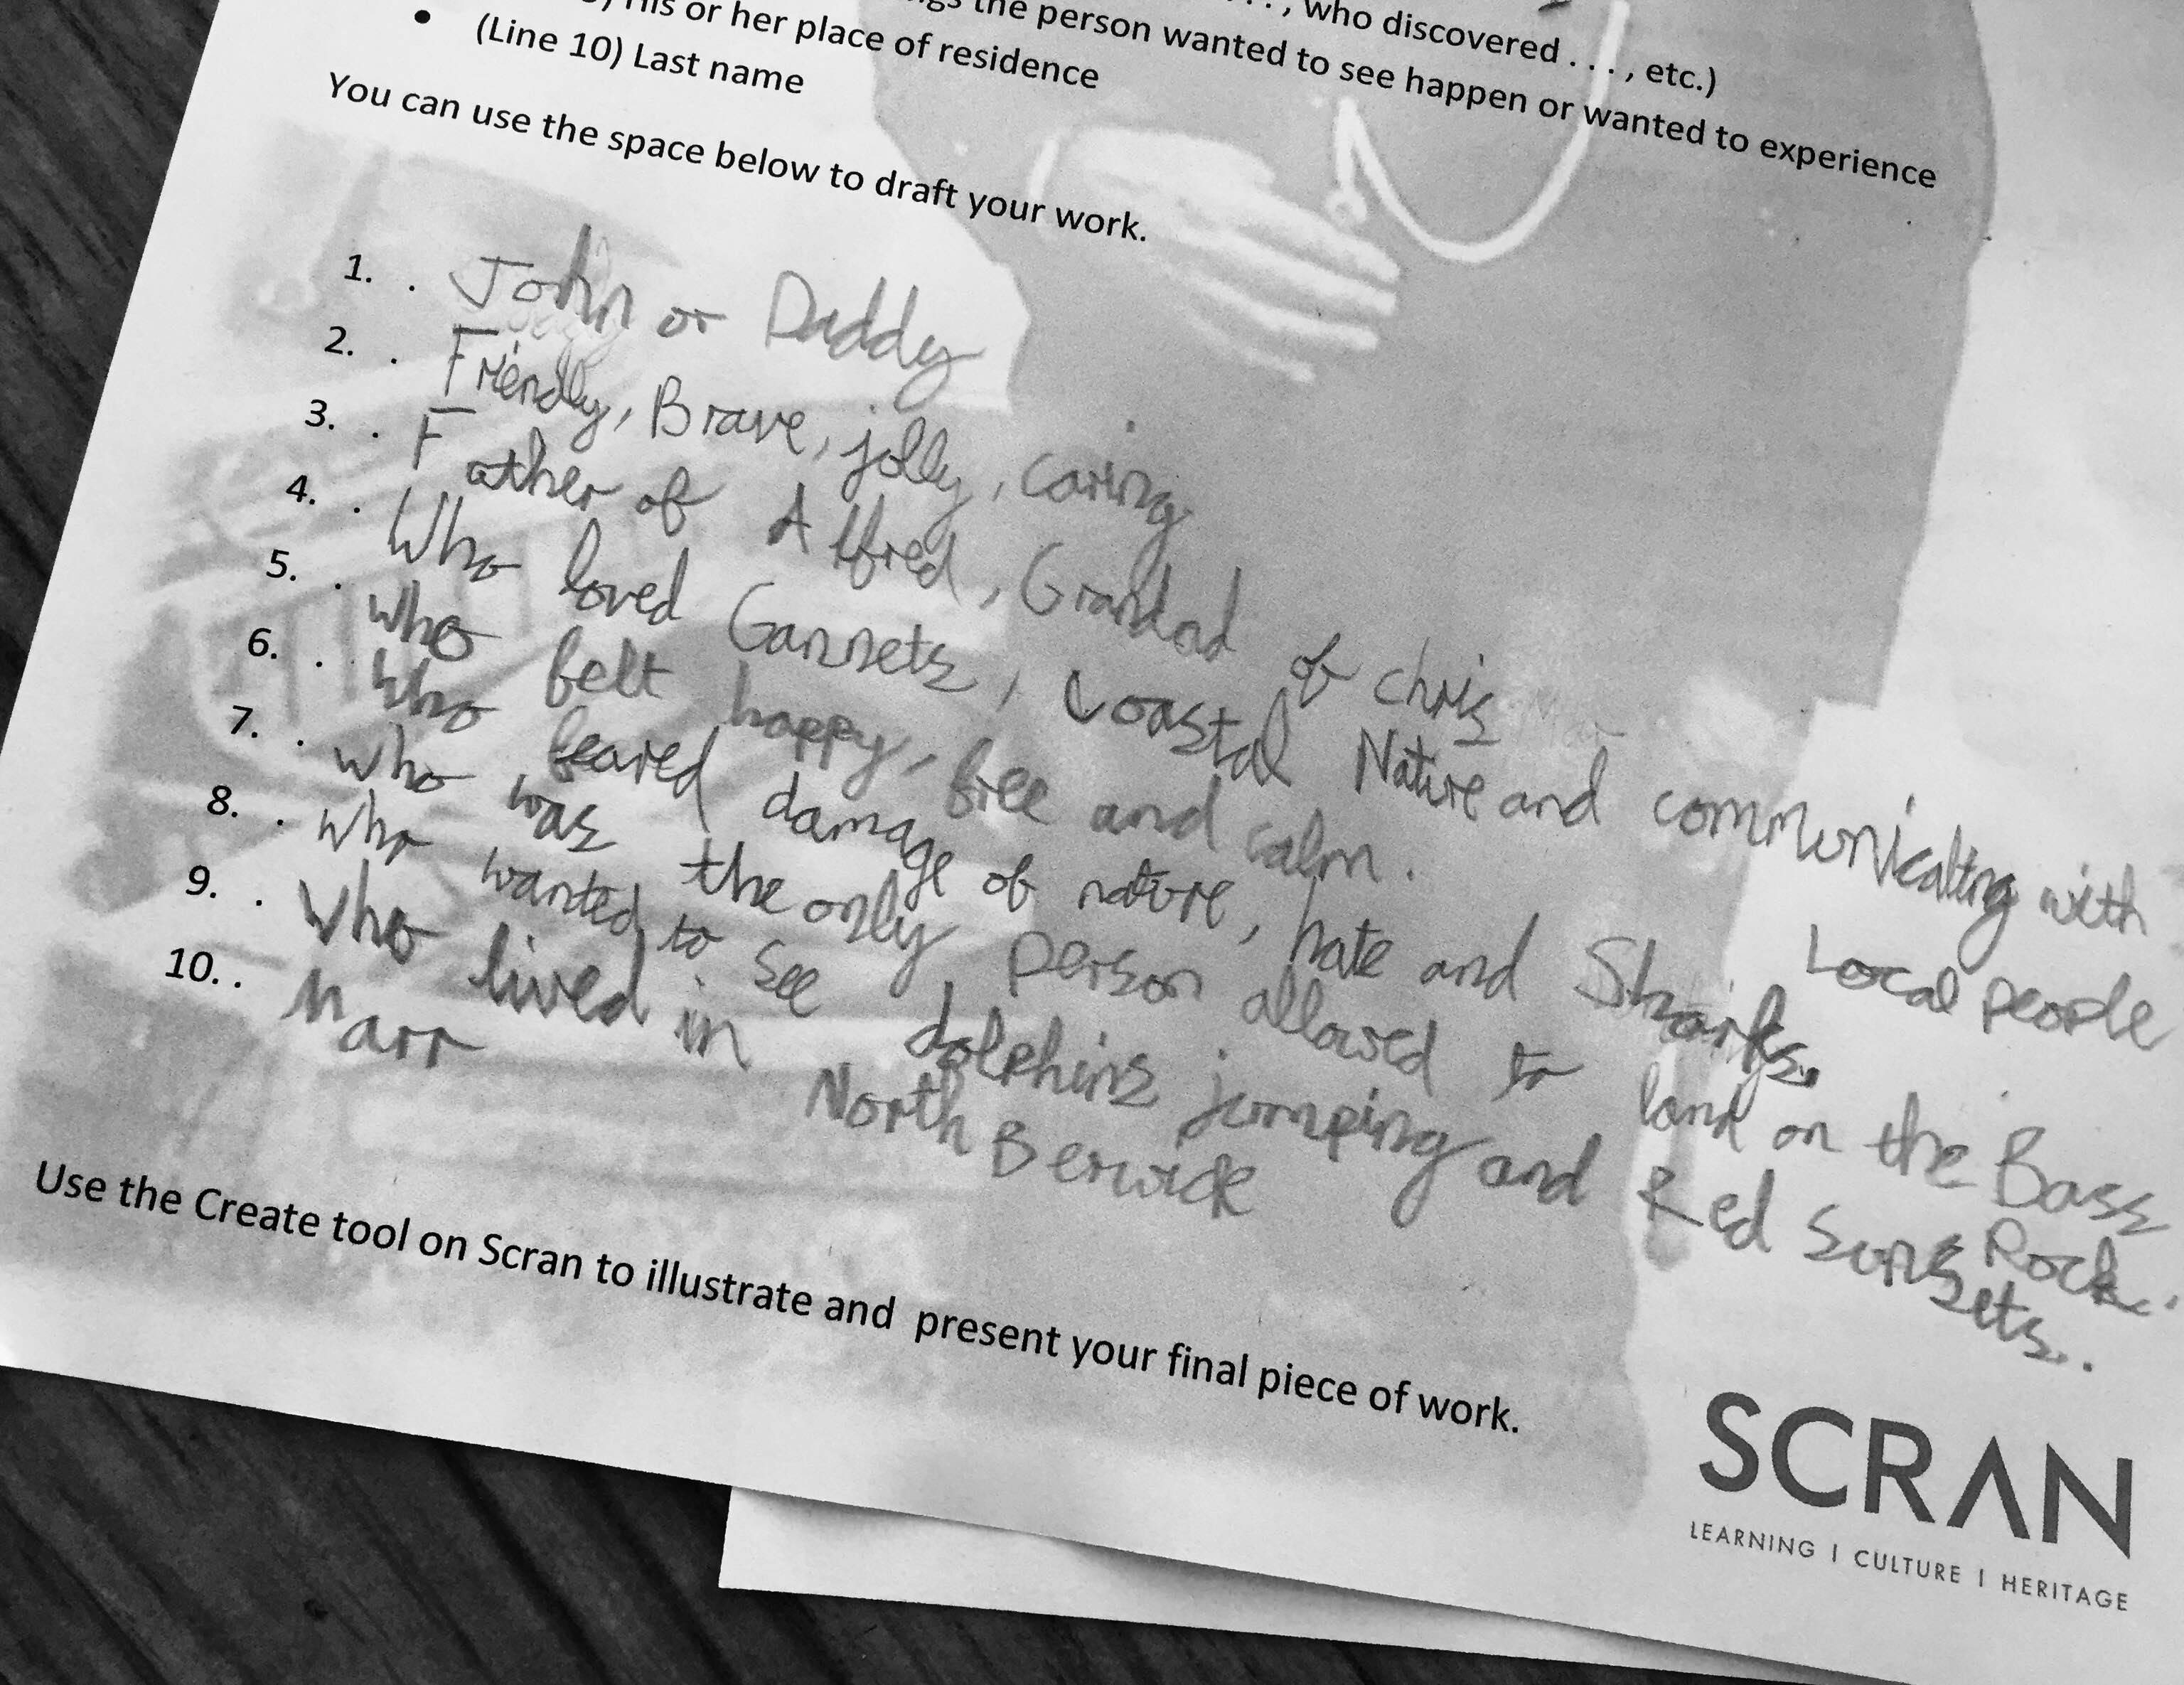 , who discovered . . . , etc.)
the person wanted to see happen or wanted to experience
His or her place of residence
• (Line 10) Last name
You can use the space below to draft your work.
1. . John or Daddy
2. . Friendly, Brave, jolly, caring
3. . Father of Alfred, Grandad of chris
4. . Who loved Gannets, Coastal Nature and communicating with
Local people
5. . who felt happy, free and calm.
6. . who feared damage of nature, hate and Sharks.
7. . who was the only person allowed to land on the Bass
Rock.
8. . who wanted to see dolphins jumping and Red Sunsets..
9. . Who lived in North Berwick
10. . Marr
Use the Create tool on Scran to illustrate and present your final piece of work.
SCRAN
LEARNING | CULTURE | HERITAGE